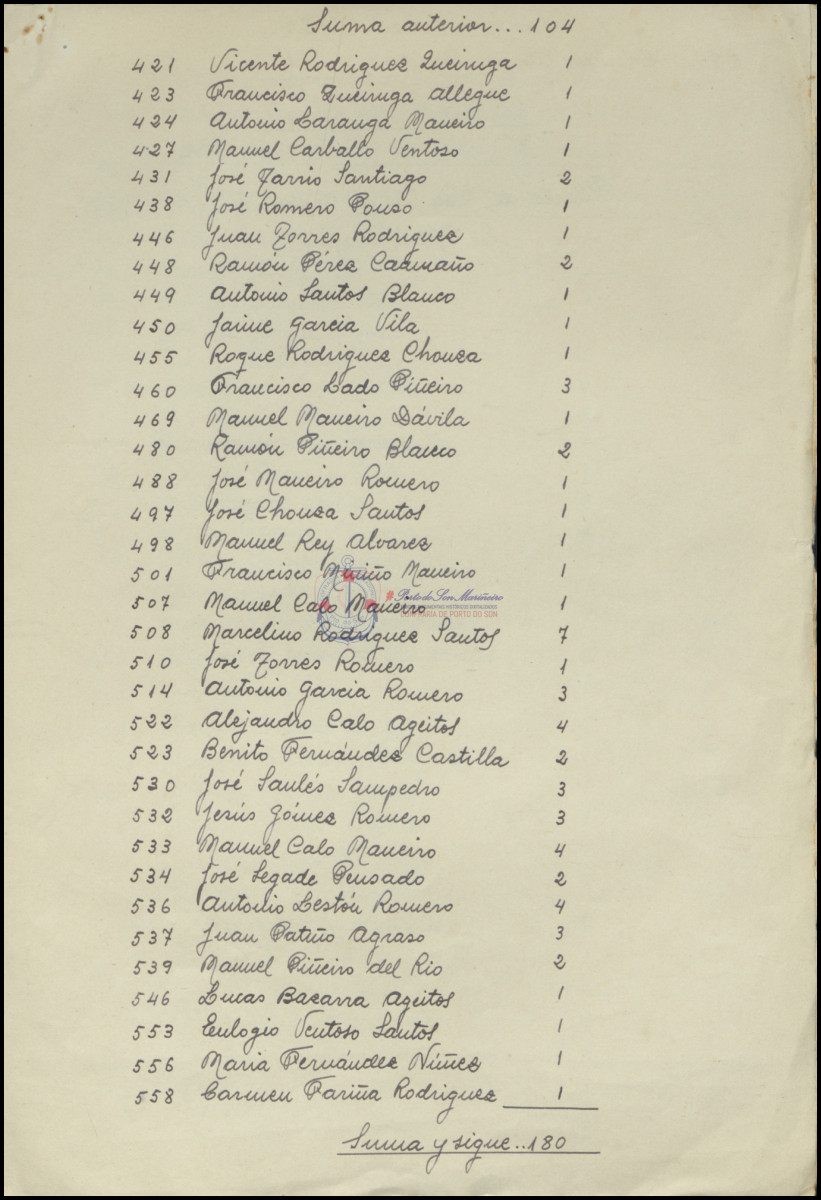 Suma anterior...104
421 Vicente Rodriguez Queiruga 1
423 Francisco Queiruga Allegue 1
424 Antonio Laranga Maneiro 1
427 Manuel Carballo Ventoso 1
431 José Tarrio Santiago 2
438 José Romero Pouso 1
446 Juan Torres Rodriguez 1
448 Ramón Pérez Caamaño 2
449 Antonio Santos Blanco 1
450 Jaime Garcia Vila 1
455 Roque Rodriguez Chouza 1
460 Francisco Lado Piñeiro 3
469 Manuel Maneiro Dávila 1
480 Ramón Piñeiro Blanco 2
488 José Maneiro Romero 1
497 José Chouza Santos 1
498 Manuel Rey Alvarez 1
501 Francisco Muiño Maneiro 1
507 Manuel Calo Maneiro 1
#PortodoSonMariñeiro
CONFRARÍA DE PORTO DO SON
508 Marcelino Rodriguez Santos 7
510 José Torres Romero 1
514 Antonio Garcia Romero 3
522 Alejandro Calo Ageitos 4
523 Benito Fernández Castilla 2
530 José Saulés Sampedro 3
532 Jesús Gómez Romero 3
533 Manuel Calo Maneiro 4
534 José Segade Pensado 2
536 Antonio Lestón Romero 4
537 Juan Patiño Agraso 3
539 Manuel Piñeiro del Rio 2
546 Lucas Bazarra Ageitos 1
553 Eulogio Ventoso Santos 1
556 Maria Fernández Núñez 1
558 Carmen Fariña Rodriguez 1
Suma y sigue..180